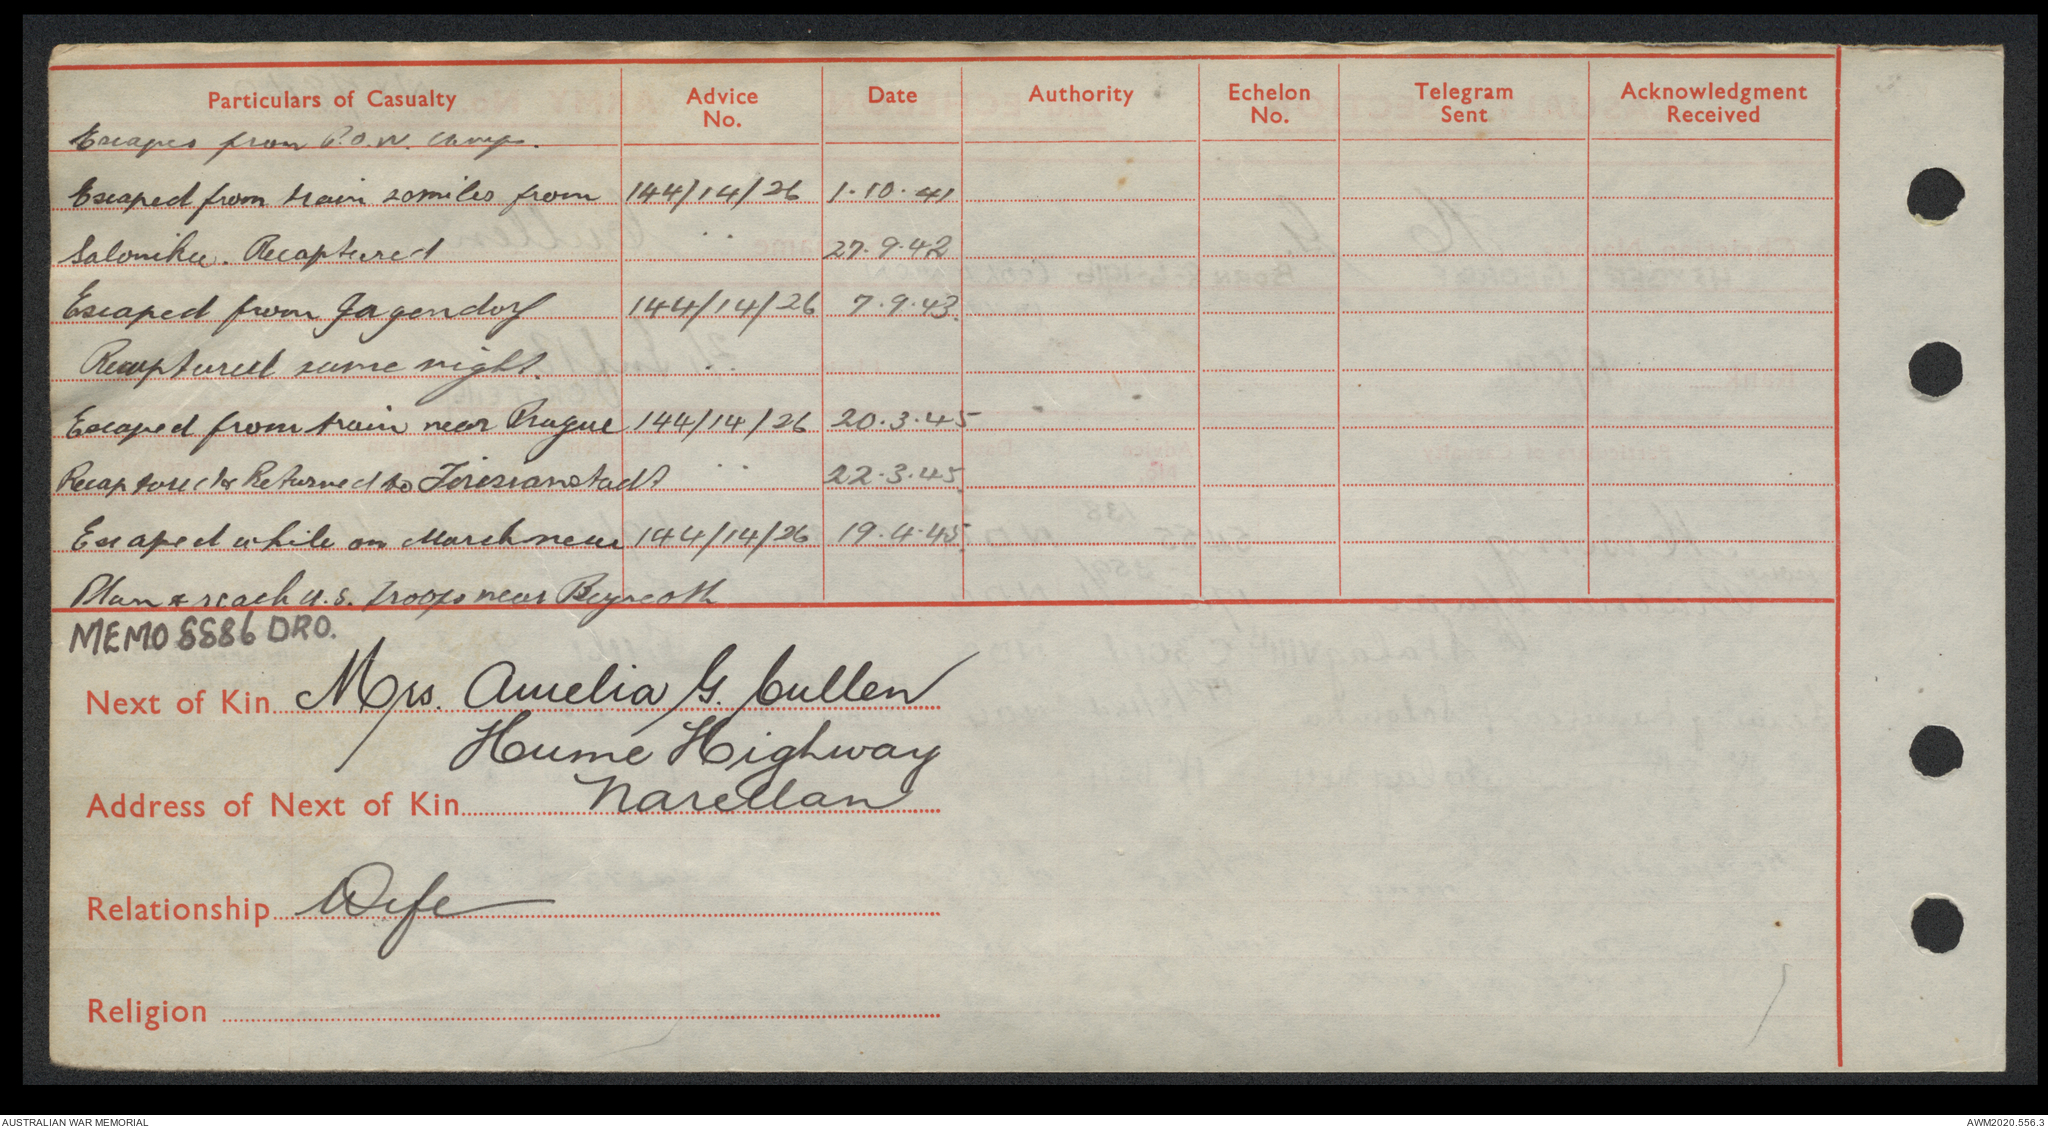 Particulars of Casualty Advice No. Date Authority Echelon No. Telegram Sent Acknowledgment Received
Escapes from P.O.W. Camp.
Escaped from train 20 miles from 144/14/26 1.10.41
Salonika. Recaptured " 27.9.42
Escaped from Jagendorf 144/14/26 7.9.43.
Recaptured same night. "
Escaped from train near Prague 144/14/26 20.3.45
Recaptured & Returned to Teresianstadt " 22.3.45.
Escaped while on March near 144/14/26 19.4.45.
Plan & reach U.S. troops near Beyreoth
MEMO 8886 DRO.
Next of Kin Mrs. Amelia G. Cullen
Hume Highway
Address of Next of Kin Narellan
Relationship Wife
Religion
AUSTRALIAN WAR MEMORIAL AWM2020.556.3